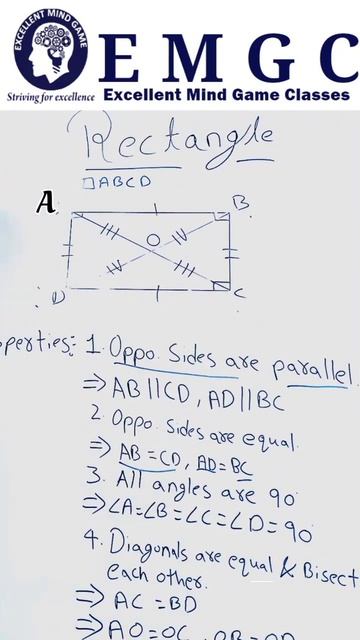 EXCELLENT MIND GAME
EMGC
Striving for excellence
Excellent Mind Game Classes
Rectangle
□ABCD
A
B
O
D
C
perties:- 1. Oppo. Sides are parallel.
⇒ AB||CD, AD||BC
2. Oppo. Sides are equal.
⇒ AB=CD, AD=BC
3. All angles are 90
⇒ ∠A=∠B=∠C=∠D=90
4. Diagonals are equal & Bisect
each other.
⇒ AC=BD
⇒ AO=OC, OB=OD